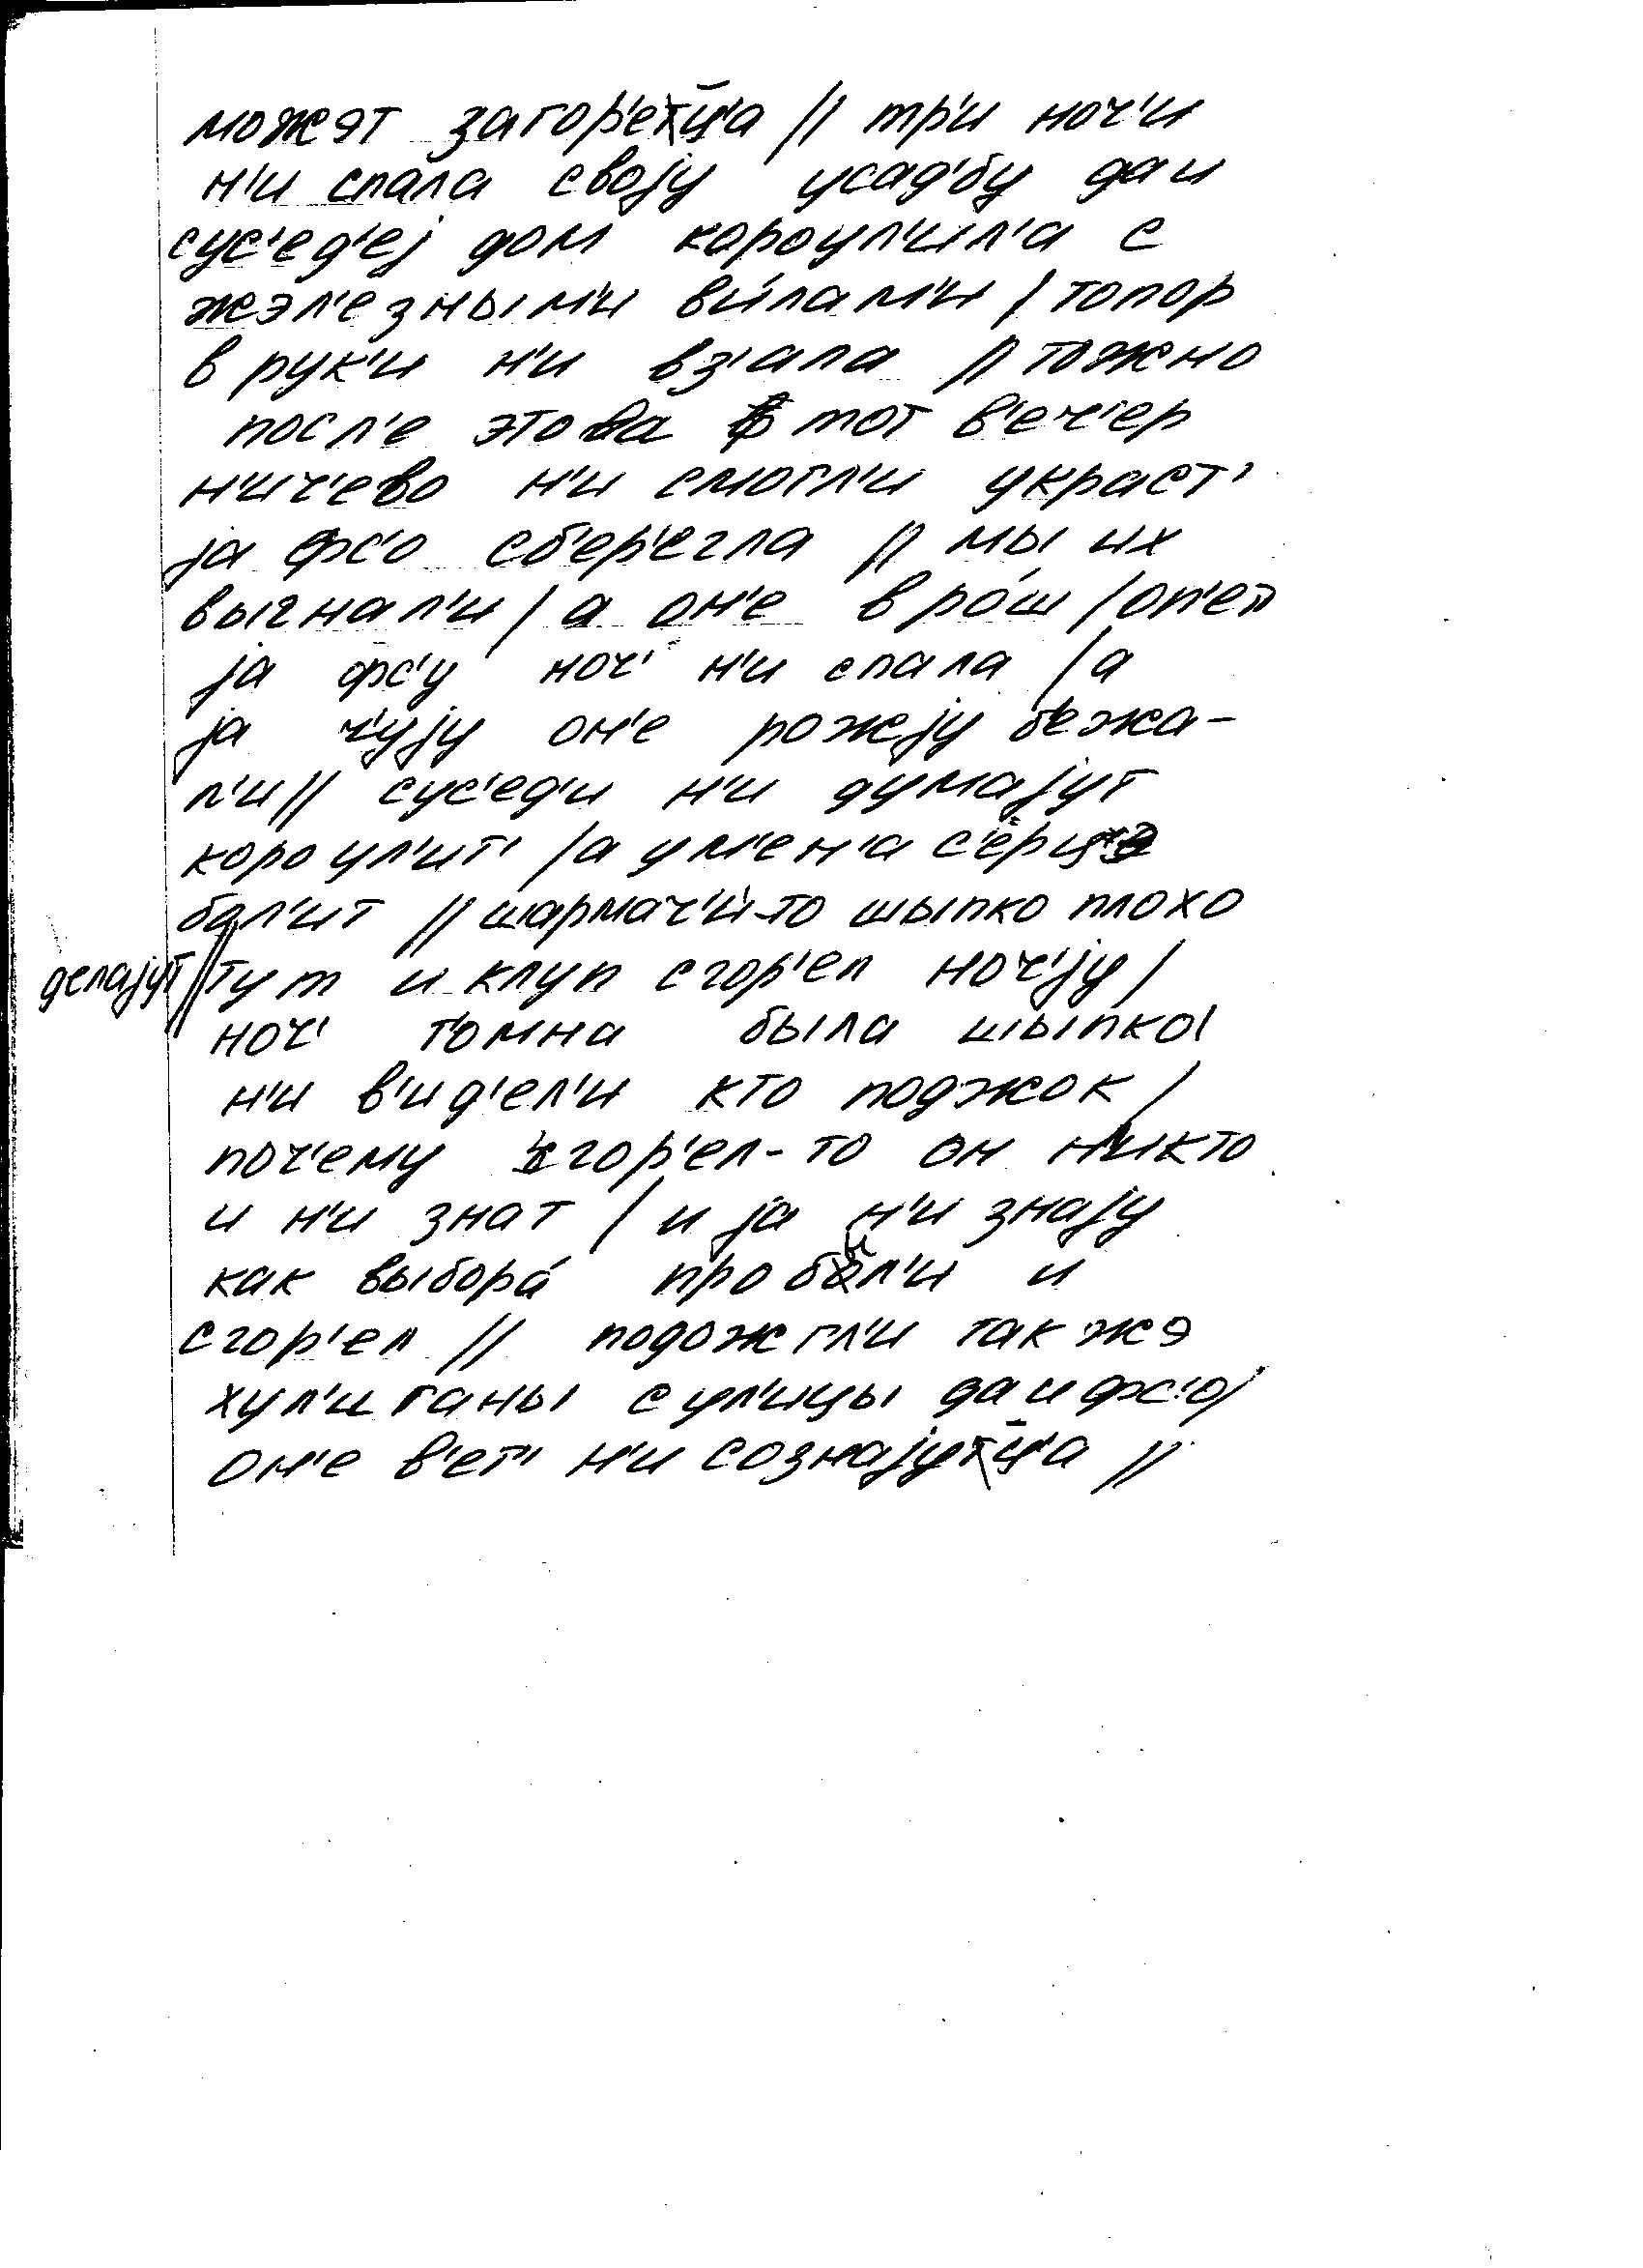 можэт загор'ец̄а // тр'и ноч'и
н'и спала своју усад'бу да и
сус'ед'еј дом короул'ил'а с
жэл'езным'и ви́лам'и / топор
в рук'и н'и вз'ала // тожно
посл'е этова в тот в'еч'ер
нич'ево н'и смогл'и украст'
ја фс'о сб'ер'егла // мы их
выгнал'и / а он'е в ро́ш / оп'ет'
ја фс'у ноч' н'и спала / а
ја ч'ују он'е рожеју б'ежа-
л'и // сус'ед'и н'и думајут
короул'ит' / а у м'ен'а с'ерцэ
бол'ит // шармач'и́-то шыпко плохо
делајут // тут и клуп сгор'ел ноч'ју /
ноч' т'омна была шыпко /
н'и в'ид'ел'и кто поджок /
поч'ему сгор'ел-то он н'икто
и н'и знат / и ја н'и знају
как выбора́ пробыл'и и
сгор'ел // подожгл'и так жэ
хул'иганы с ул'ицы да и фс'о /
он'е в'ет' н'и сознајуц̄а //